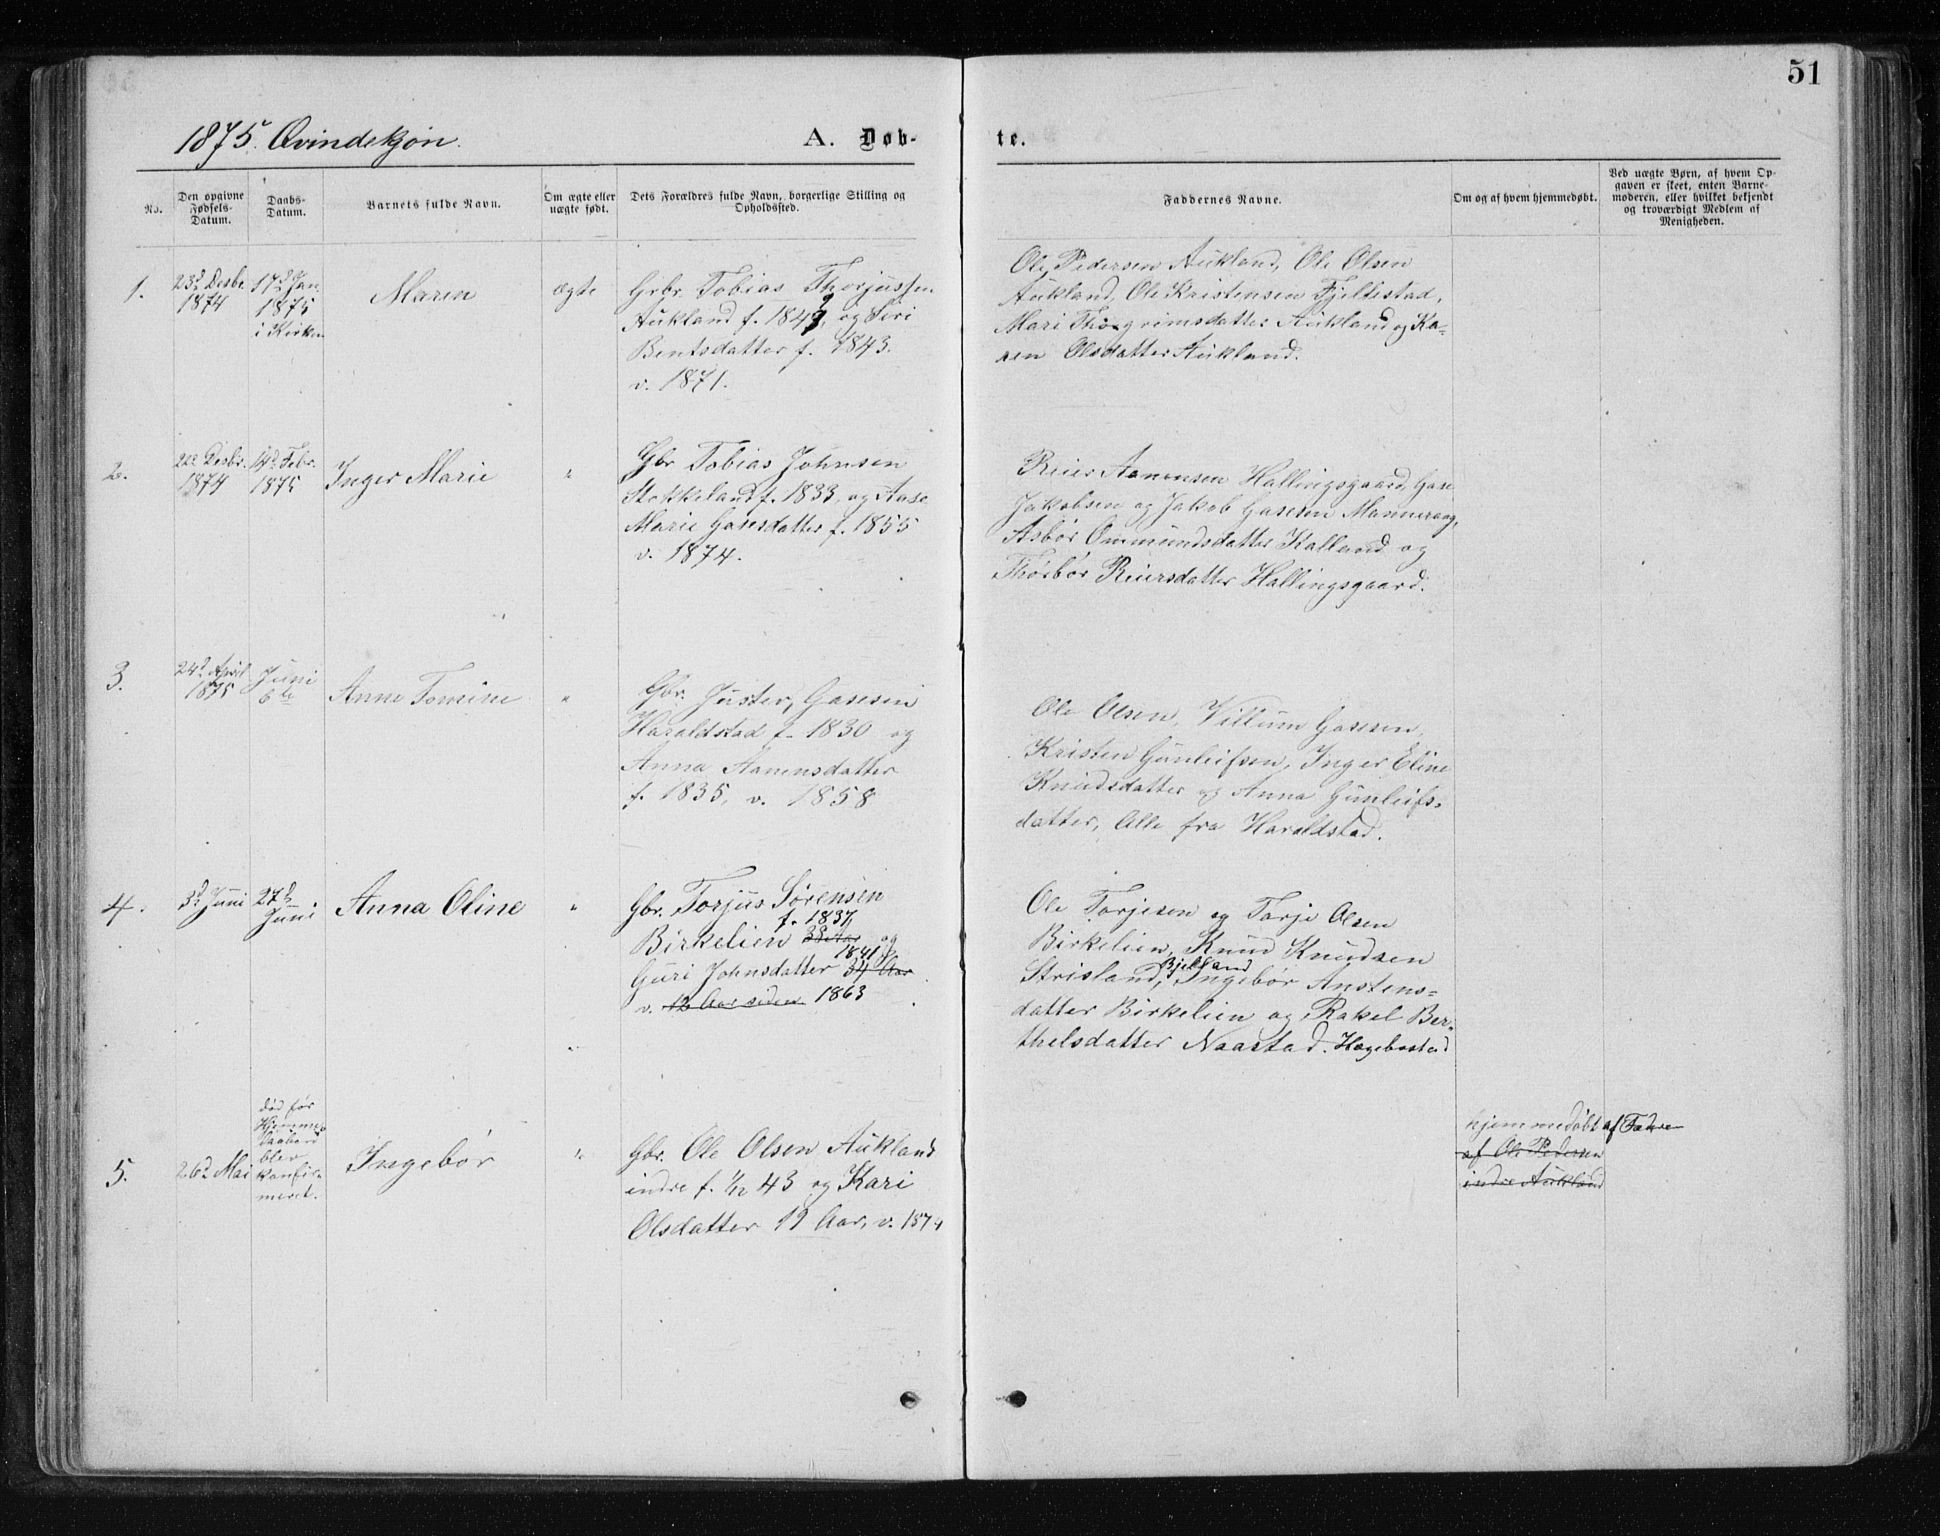 51
1875. Qvindekjøn.
A. Døb-
te.
No.
Den opgivne
Fødsels-
Datum.
Daabs-
Datum.
Barnets fulde Navn.
Om ægte eller
uægte født.
Dets Forældres fulde Navn, borgerlige Stilling og
Opholdssted.
Faddernes Navne.
Om og af hvem hjemmedøbt.
Ved uægte Børn, af hvem Op-
gaven er skeet, enten Barne-
moderen, eller hvilket bekjendt
og troværdigt Medlem af
Menigheden.
1.
23d Desbr.
1874
17d Jan.
1875
i Kirken
Maren
ægte
Grbr. Tobias Thorjussen
Aukland f. 1849, og Siri
Bentsdatter f. 1843.
v. 1871.
Ole Pedersen Aukland, Ole Olsen
Aukland, Ole Kristensen Fjeldestad,
Mari Thorgrimsdatter Aukland og Ka-
ren Olsdatter Aukland.
2.
22d Desbr.
1874
14d Febr.
1875
Inger Marie
"
Gbr. Tobias Johnsen
Stokkeland f. 1833, og Aase
Marie Gasesdatter f. 1855
v. 1874.
Reier Aanensen Hallingsgaard, Gase
Jakobsen og Jakob Gasesen Mannerang,
Asbør Ommundsdatter Kalland og
Thorbør Reiersdatter Hallingsgaard.
3.
24d April
1875
Juni
6te
Anne Tomine
"
Gbr. Juster, Gasesen
Haraldstad f. 1830 og
Anna Aanensdatter
f. 1835, v. 1858
Ole Olsen, Villum Gasesen,
Kristen Gunleifsen, Inger Eline
Knudsdatter og Anna Gunleifs-
datter, Alle fra Haraldstad.
4.
3d Juni
27d
Juni
Anna Oline
"
Gbr. Torjus Sørensen
f. 1837
Birkelien 38 Aar og
1841
Guri Johnsdatter 34 Aar
v. 12 Aar siden 1863
Ole Torjesen og Torje Olsen
Birkelien, Knud Knudsen
Bjelland
Strisland, Ingebør Anstens-
datter Birkelien og Rakel Ber-
thelsdatter Naastad. Hægebostad
5.
26d Mai
død før
Hjemme-
daaben
blev
konfir-
meret.
Ingebør
"
Gbr. Ole Olsen Aukland
indre f. 1/12 43 og Kari
Olsdatter 19 Aar, v. 1874
hjemmedøbt af Fadren
af Ole Pedersen
indre Aukland